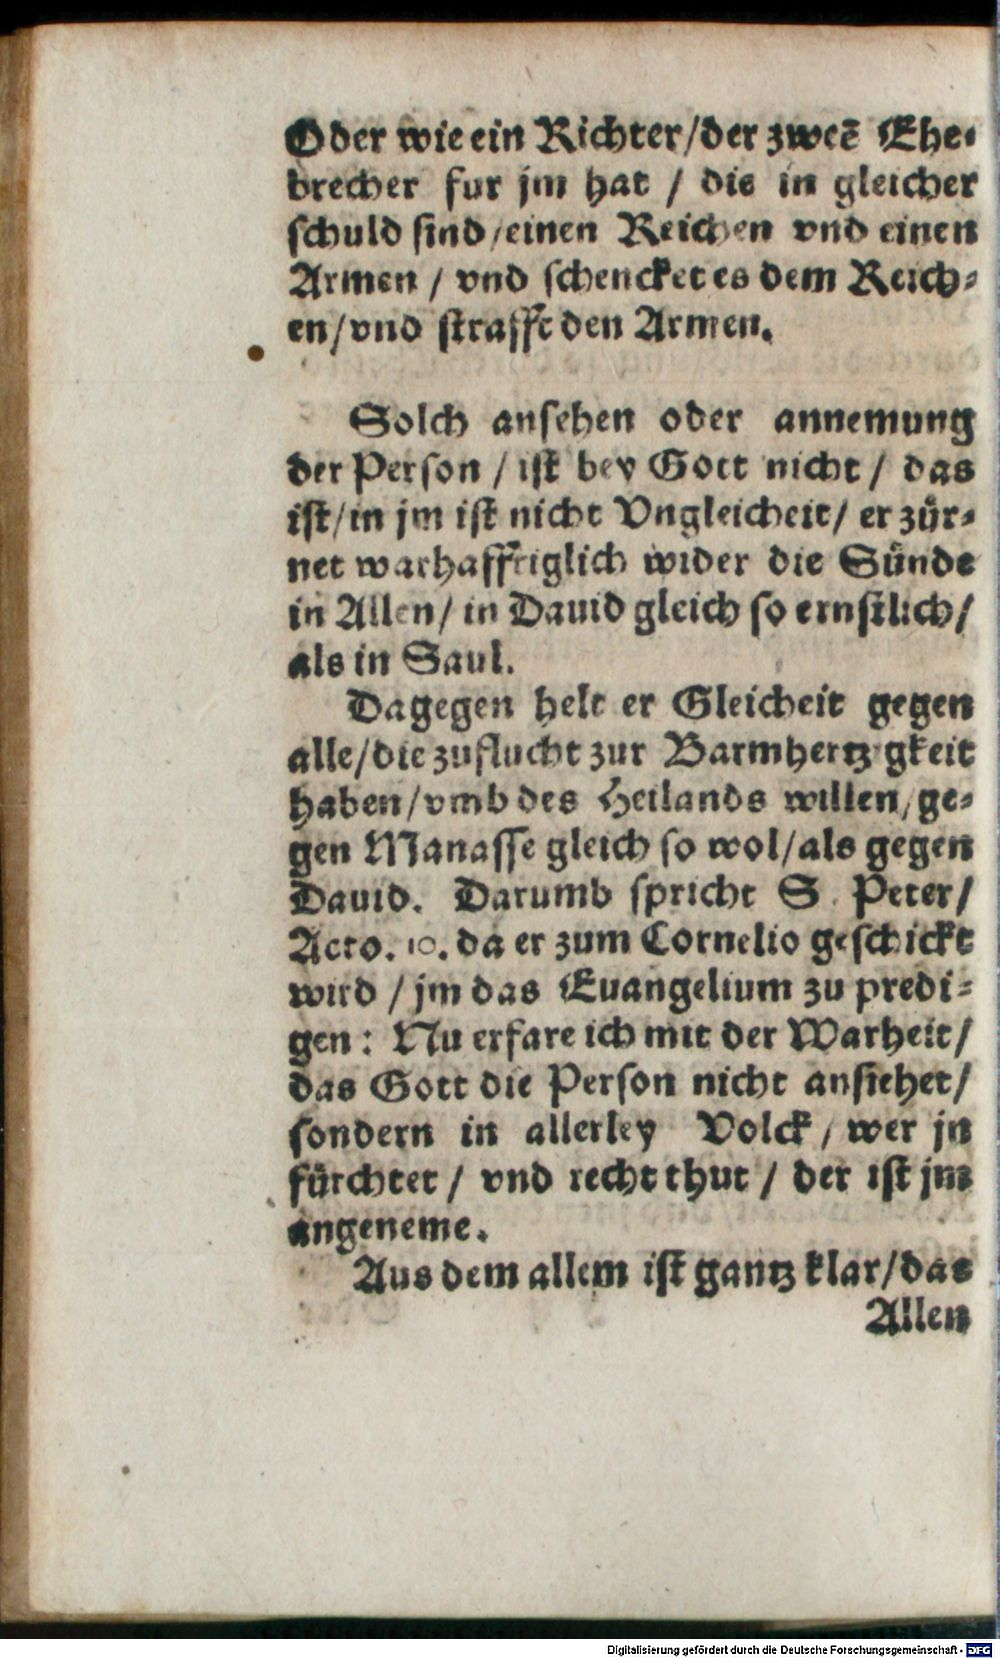 Oder wie ein Richter/der zweē Ehe-
brecher fur jm hat / die in gleicher
schuld sind/einen Reichen vnd einen
Armen / vnd schencket es dem Reich-
en/vnd strafft den Armen.
Solch ansehen oder annemung
der Person / ist bey Gott nicht / das
ist/in jm ist nicht Vngleicheit/ er zür-
net warhafftiglich wider die Sünde
in Allen/ in Dauid gleich so ernstlich/
als in Saul.
Dagegen helt er Gleicheit gegen
alle/die zuflucht zur Barmhertzigkeit
haben/vmb des Heilands willen/ge-
gen Manasse gleich so wol/als gegen
Dauid. Darumb spricht S. Peter/
Acto. 10. da er zum Cornelio geschickt
wird / jm das Euangelium zu predi-
gen: Nu erfare ich mit der Warheit/
das Gott die Person nicht ansiehet/
sondern in allerley Volck/ wer jn
fürchtet / vnd recht thut / der ist jm
angeneme.
Aus dem allem ist gantz klar/das
Allen
Digitalisierung gefördert durch die Deutsche Forschungsgemeinschaft - DFG